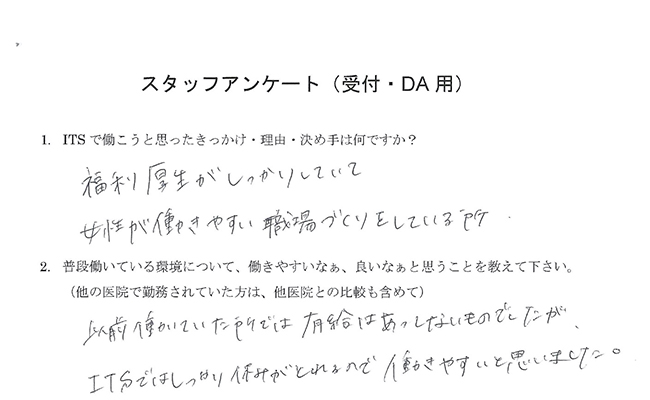 スタッフアンケート（受付・DA 用）
1. ITS で働こうと思ったきっかけ・理由・決め手は何ですか？
福利厚生がしっかりしていて
女性が働きやすい職場づくりをしている所.
2. 普段働いている環境について、働きやすいなぁ、良いなぁと思うことを教えて下さい。
（他の医院で勤務されていた方は、他医院との比較も含めて）
以前働いていた所では有給はあってないものでしたが、
ITSではしっかり休みがとれるので働きやすいと思いました。